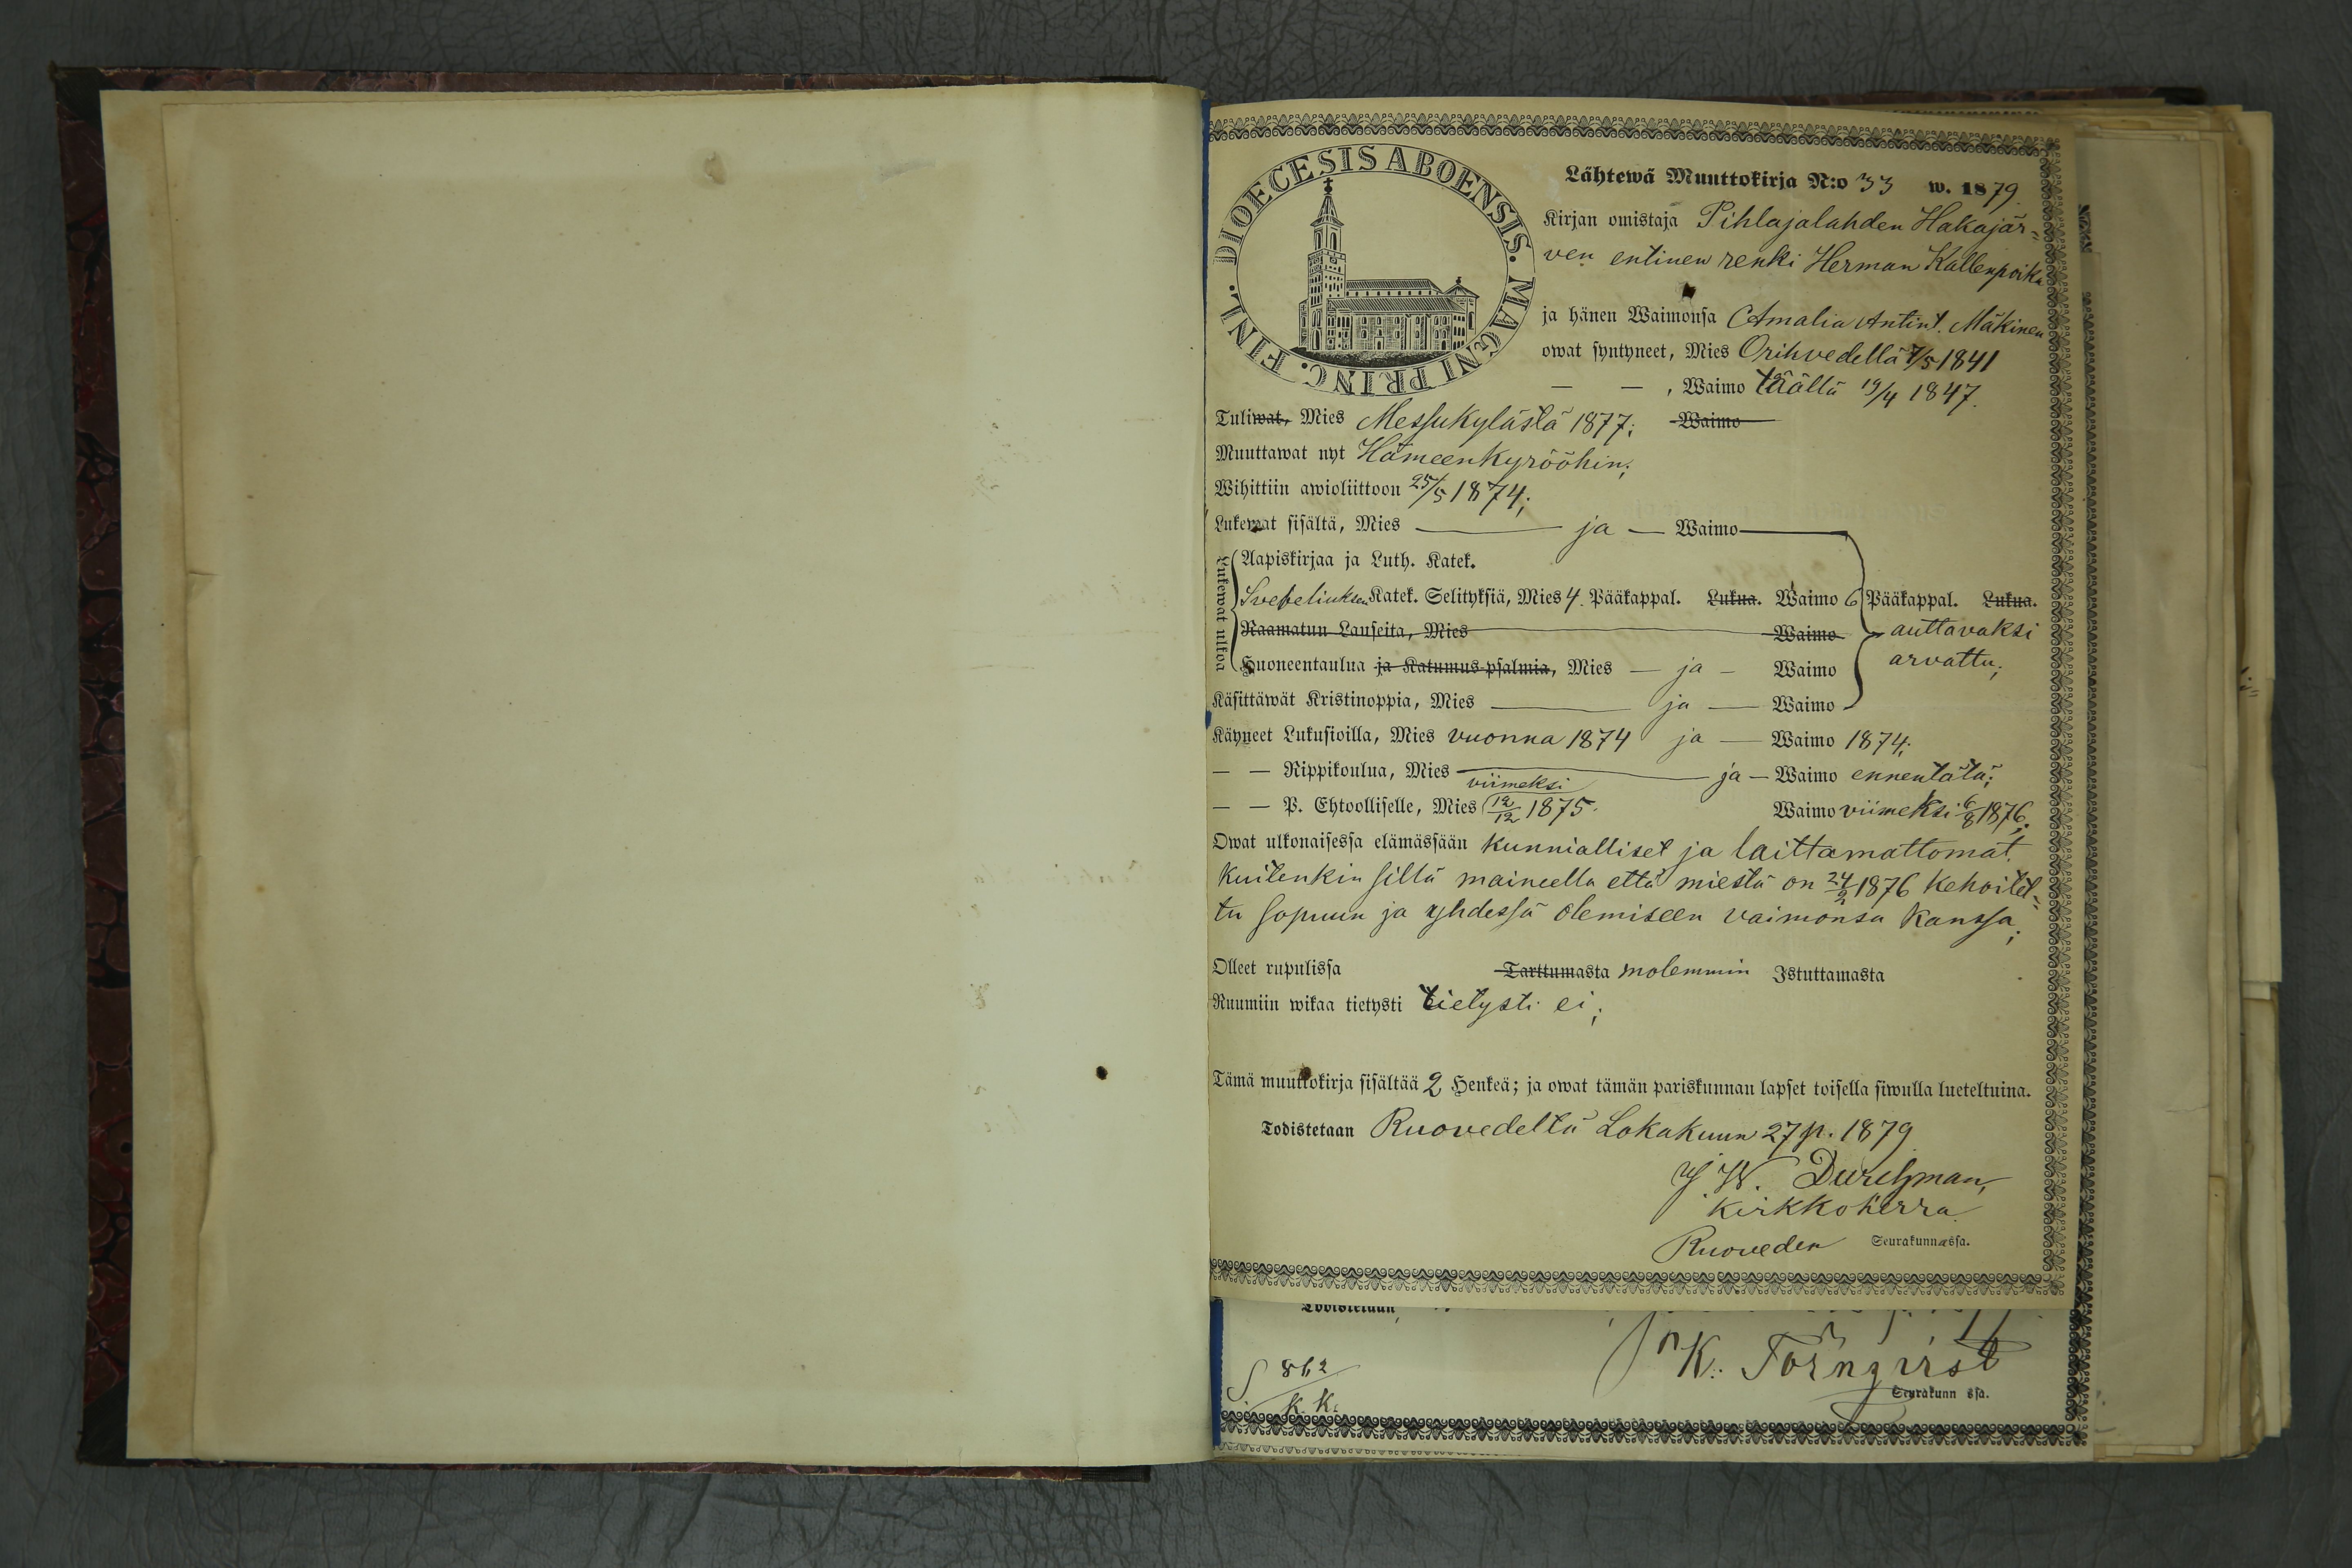 DIOECESIS ABOENSIS. MAGNI PRINC. FINL.
Lähtewä Muuttokirja N:o 33 w. 1879.
Kirjan omistaja Pihlajalahden Hakajär=
ven entinen renki Herman Kallenpoika
ja hänen Waimonsa Amalia Antint. Mäkinen
owat syntyneet, Mies Orihvedellä 7/5 1841
— — , Waimo täällä 19/4 1847.
Tuliwat, Mies Messukylästä 1877; Waimo
Muuttawat nyt Hämeenkyrööhin;
Wihittiin awioliittoon 25/5 1874;
Lukewat sisältä, Mies — ja — Waimo —
Lukewat ulkoa
Aapiskirjaa ja Luth. Katek.
Svebeliuksen Katek. Selityksiä, Mies 4. Pääkappal. Lukua. Waimo 6 Pääkappal. Lukua.
Raamatun Lauseita, Mies Waimo auttavaksi
Huoneentaulua ja Katumus-psalmia, Mies — ja — Waimo arvattu;
Käsittäwät Kristinoppia, Mies — ja — Waimo
Käyneet Lukusioilla, Mies vuonna 1874 ja — Waimo 1874;
— — Rippikoulua, Mies — ja — Waimo ennentätä;
— — P. Ehtoolliselle, Mies viimeksi 12/12 1875. Waimo viimeksi 6/8 1876;
Owat ulkonaisessa elämässään kunnialliset ja laittamattomat,
kuitenkin sillä maineella että miestä on 24/2 1876 kehoitet=
tu sopuun ja yhdessä olemiseen vaimonsa kanssa;
Olleet rupulissa Tarttumasta molemmin Istuttamasta
Ruumiin wikaa tietysti tietysti ei;
Tämä muuttokirja sisältää 2 Henkeä; ja owat tämän pariskunnan lapset toisella siwulla lueteltuina.
Todistetaan Ruovedeltä Lokakuun 27 p. 1879
Durchman,
Kirkkoherra
Ruoveden Seurakunnassa.
Todistetaan
K. Törnqvist
Seurakunn ssa.
S 862
K. K.